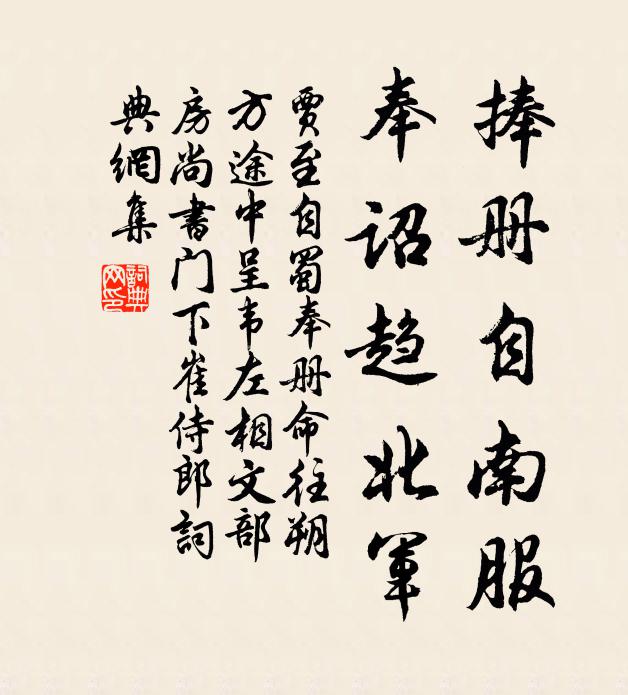 捧册自南服
奉诏趋北军
賈至自蜀奉册命往朔
方途中呈韦左相文部
房尚書门下崔侍郎詞
典網集
詞典网印